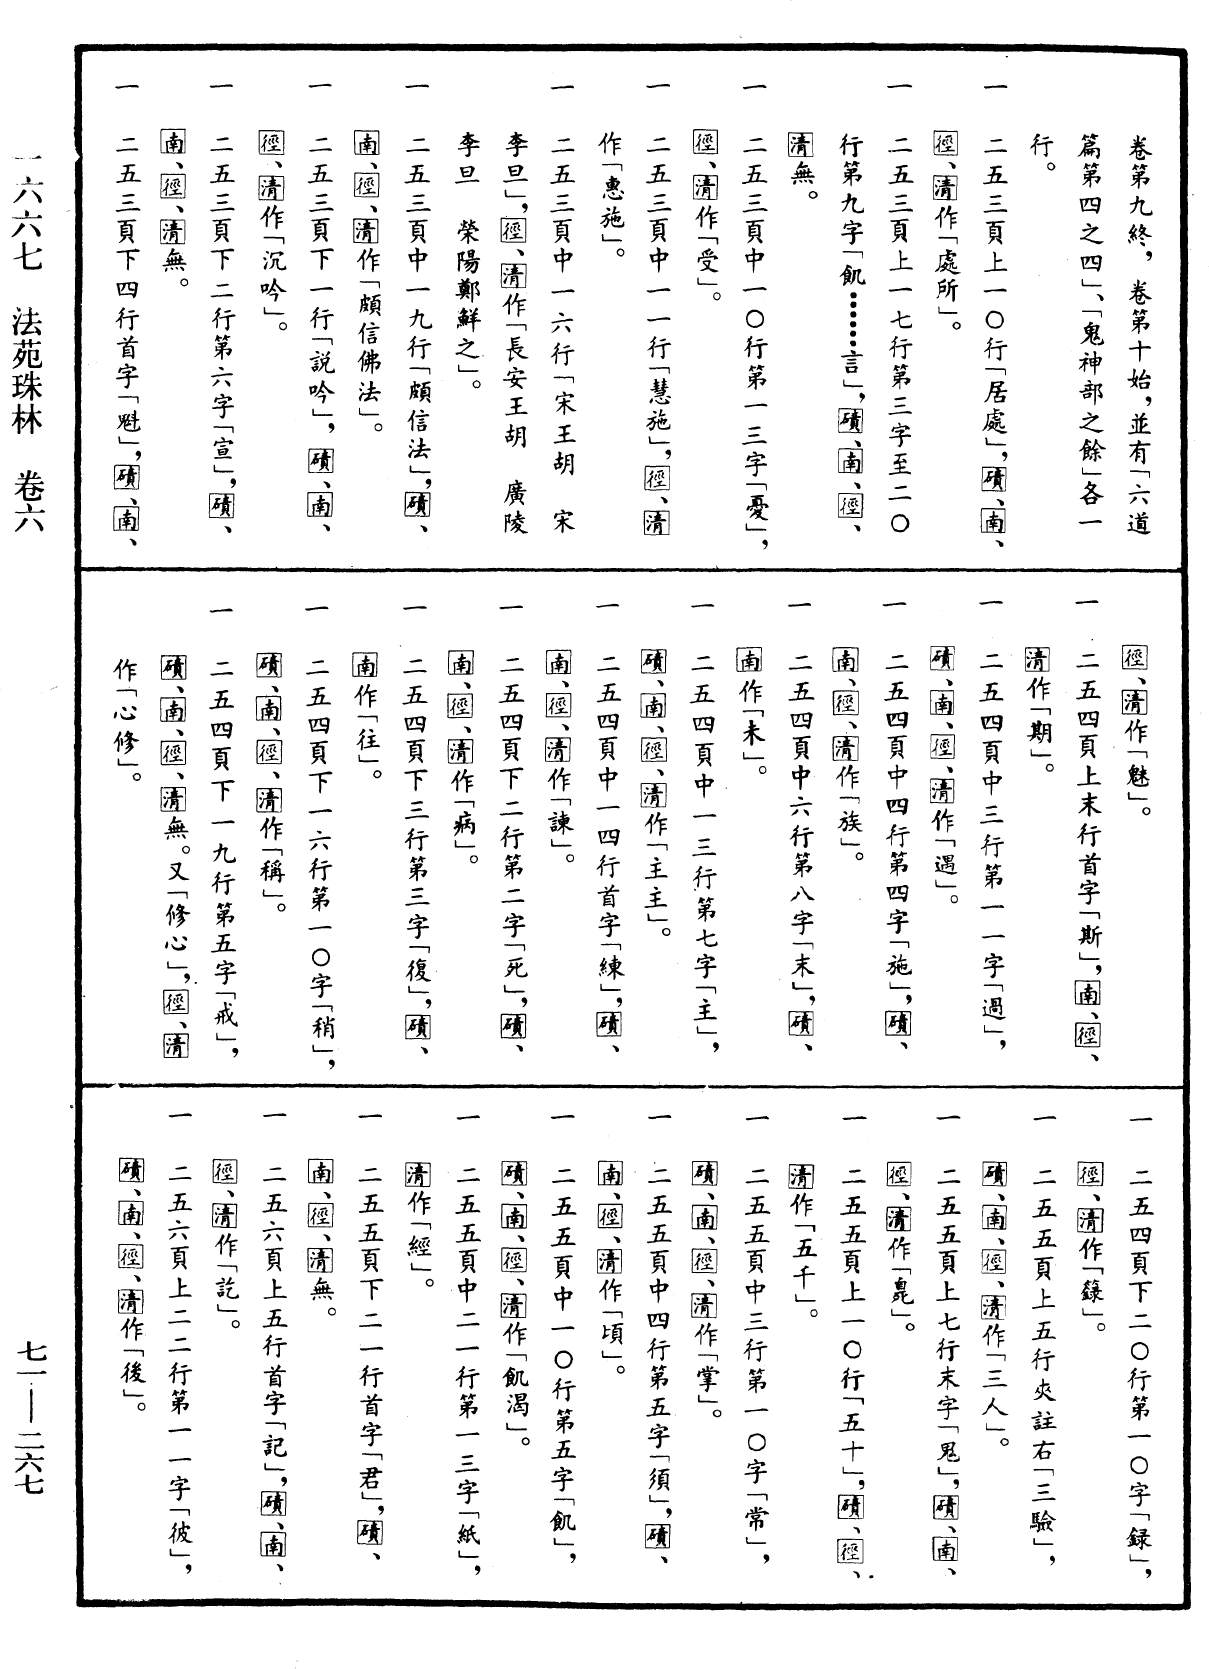 卷第九終，卷第十始，並有「六道
篇第四之四」、「鬼神部之餘」各一
行。
一　二五三頁上一〇行「居處」，磧、南、
徑、清作「處所」。
一　二五三頁上一七行第三字至二〇
行第九字「飢……言」，磧、南、徑、
清無。
一　二五三頁中一〇行第一三字「憂」，
徑、清作「受」。
一　二五三頁中一一行「慧施」，徑、清
作「惠施」。
一　二五三頁中一六行「宋王胡　宋
李旦」，徑、清作「長安王胡　廣陵
李旦　滎陽鄭鮮之」。
一　二五三頁中一九行「頗信法」，磧、
南、徑、清作「頗信佛法」。
一　二五三頁下一行「說吟」，磧、南、
徑、清作「沉吟」。
一　二五三頁下二行第六字「宣」，磧、
南、徑、清無。
一　二五三頁下四行首字「魁」，磧、南、
徑、清作「魅」。
一　二五四頁上末行首字「斯」，南、徑、
清作「期」。
一　二五四頁中三行第一一字「過」，
磧、南、徑、清作「遇」。
一　二五四頁中四行第四字「施」，磧、
南、徑、清作「族」。
一　二五四頁中六行第八字「末」，磧、
南作「未」。
一　二五四頁中一三行第七字「主」，
磧、南、徑、清作「主主」。
一　二五四頁中一四行首字「練」，磧、
南、徑、清作「諫」。
一　二五四頁下二行第二字「死」，磧、
南、徑、清作「病」。
一　二五四頁下三行第三字「復」，磧、
南作「往」。
一　二五四頁下一六行第一〇字「稍」，
磧、南、徑、清作「稱」。
一　二五四頁下一九行第五字「戒」，
磧、南、徑、清無。又「修心」，徑、清
作「心修」。
一　二五四頁下二〇行第一〇字「録」，
徑、清作「籙」。
一　二五五頁上五行夾註右「三驗」，
磧、南、徑、清作「三人」。
一　二五五頁上七行末字「鬼」，磧、南、
徑、清作「毘」。
一　二五五頁上一〇行「五十」，磧、徑、
清作「五千」。
一　二五五頁中三行第一〇字「常」，
磧、南、徑、清作「掌」。
一　二五五頁中四行第五字「須」，磧、
南、徑、清作「頃」。
一　二五五頁中一〇行第五字「飢」，
磧、南、徑、清作「飢渴」。
一　二五五頁中二一行第一三字「紙」，
清作「經」。
一　二五五頁下二一行首字「君」，磧、
南、徑、清無。
一　二五六頁上五行首字「記」，磧、南、
徑、清作「訖」。
一　二五六頁上二二行第一一字「彼」，
磧、南、徑、清作「後」。
一六六七　法苑珠林　卷六
七一——二六七